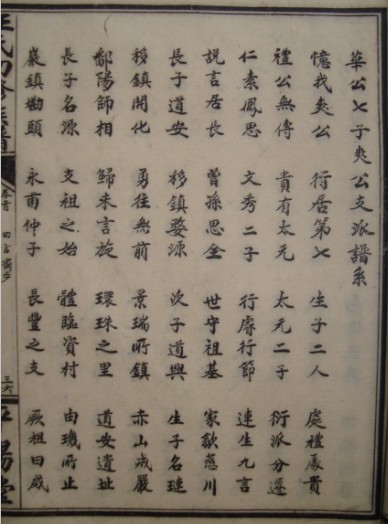 華公七子奭公支派譜系
憶我奭公 衍居第七 生子二人 處禮處貴
禮公無傳 貴有太元 太元二子 衍派分遷
仁素鳳思 文秀二子 行㢘行節 連生九言
説言居長 曾孫思全 世守祖基 家歙慈川
長子道安 移鎮婺源 次子道興 生子名璉
移鎮開化 勇往無前 景瑞所鎮 赤山戒嚴
鄱陽師相 歸朱言旋 環珠之里 道安遺址
長子名源 支祖之始 體臨資村 由璣所止
巖鎮拗頭 永甫仲子 長豐之支 厥祖曰
卷首 四言 三六
平陽堂